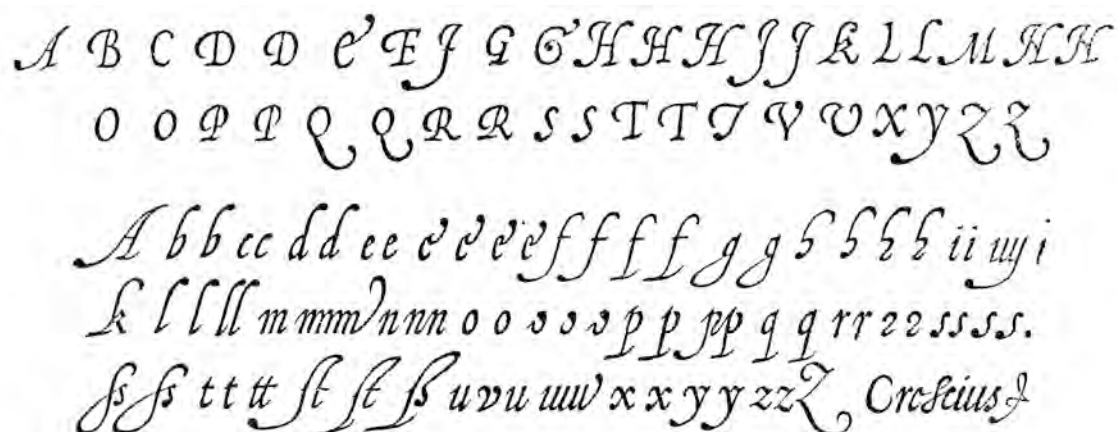 A B C D D E E F G G H H H J J K L L M H H
O O P P Q Q R R S S T T T V V X Y Z Z
A b b cc d d ee e e e e f f f f g g h h h h ii uy i
k l l ll m mmm nnn o o o o o p p pp q q rr 22 ssss.
ſs ſs t t tt ſt ſt ß u v u uuu x x y y zzZ Creſcius &